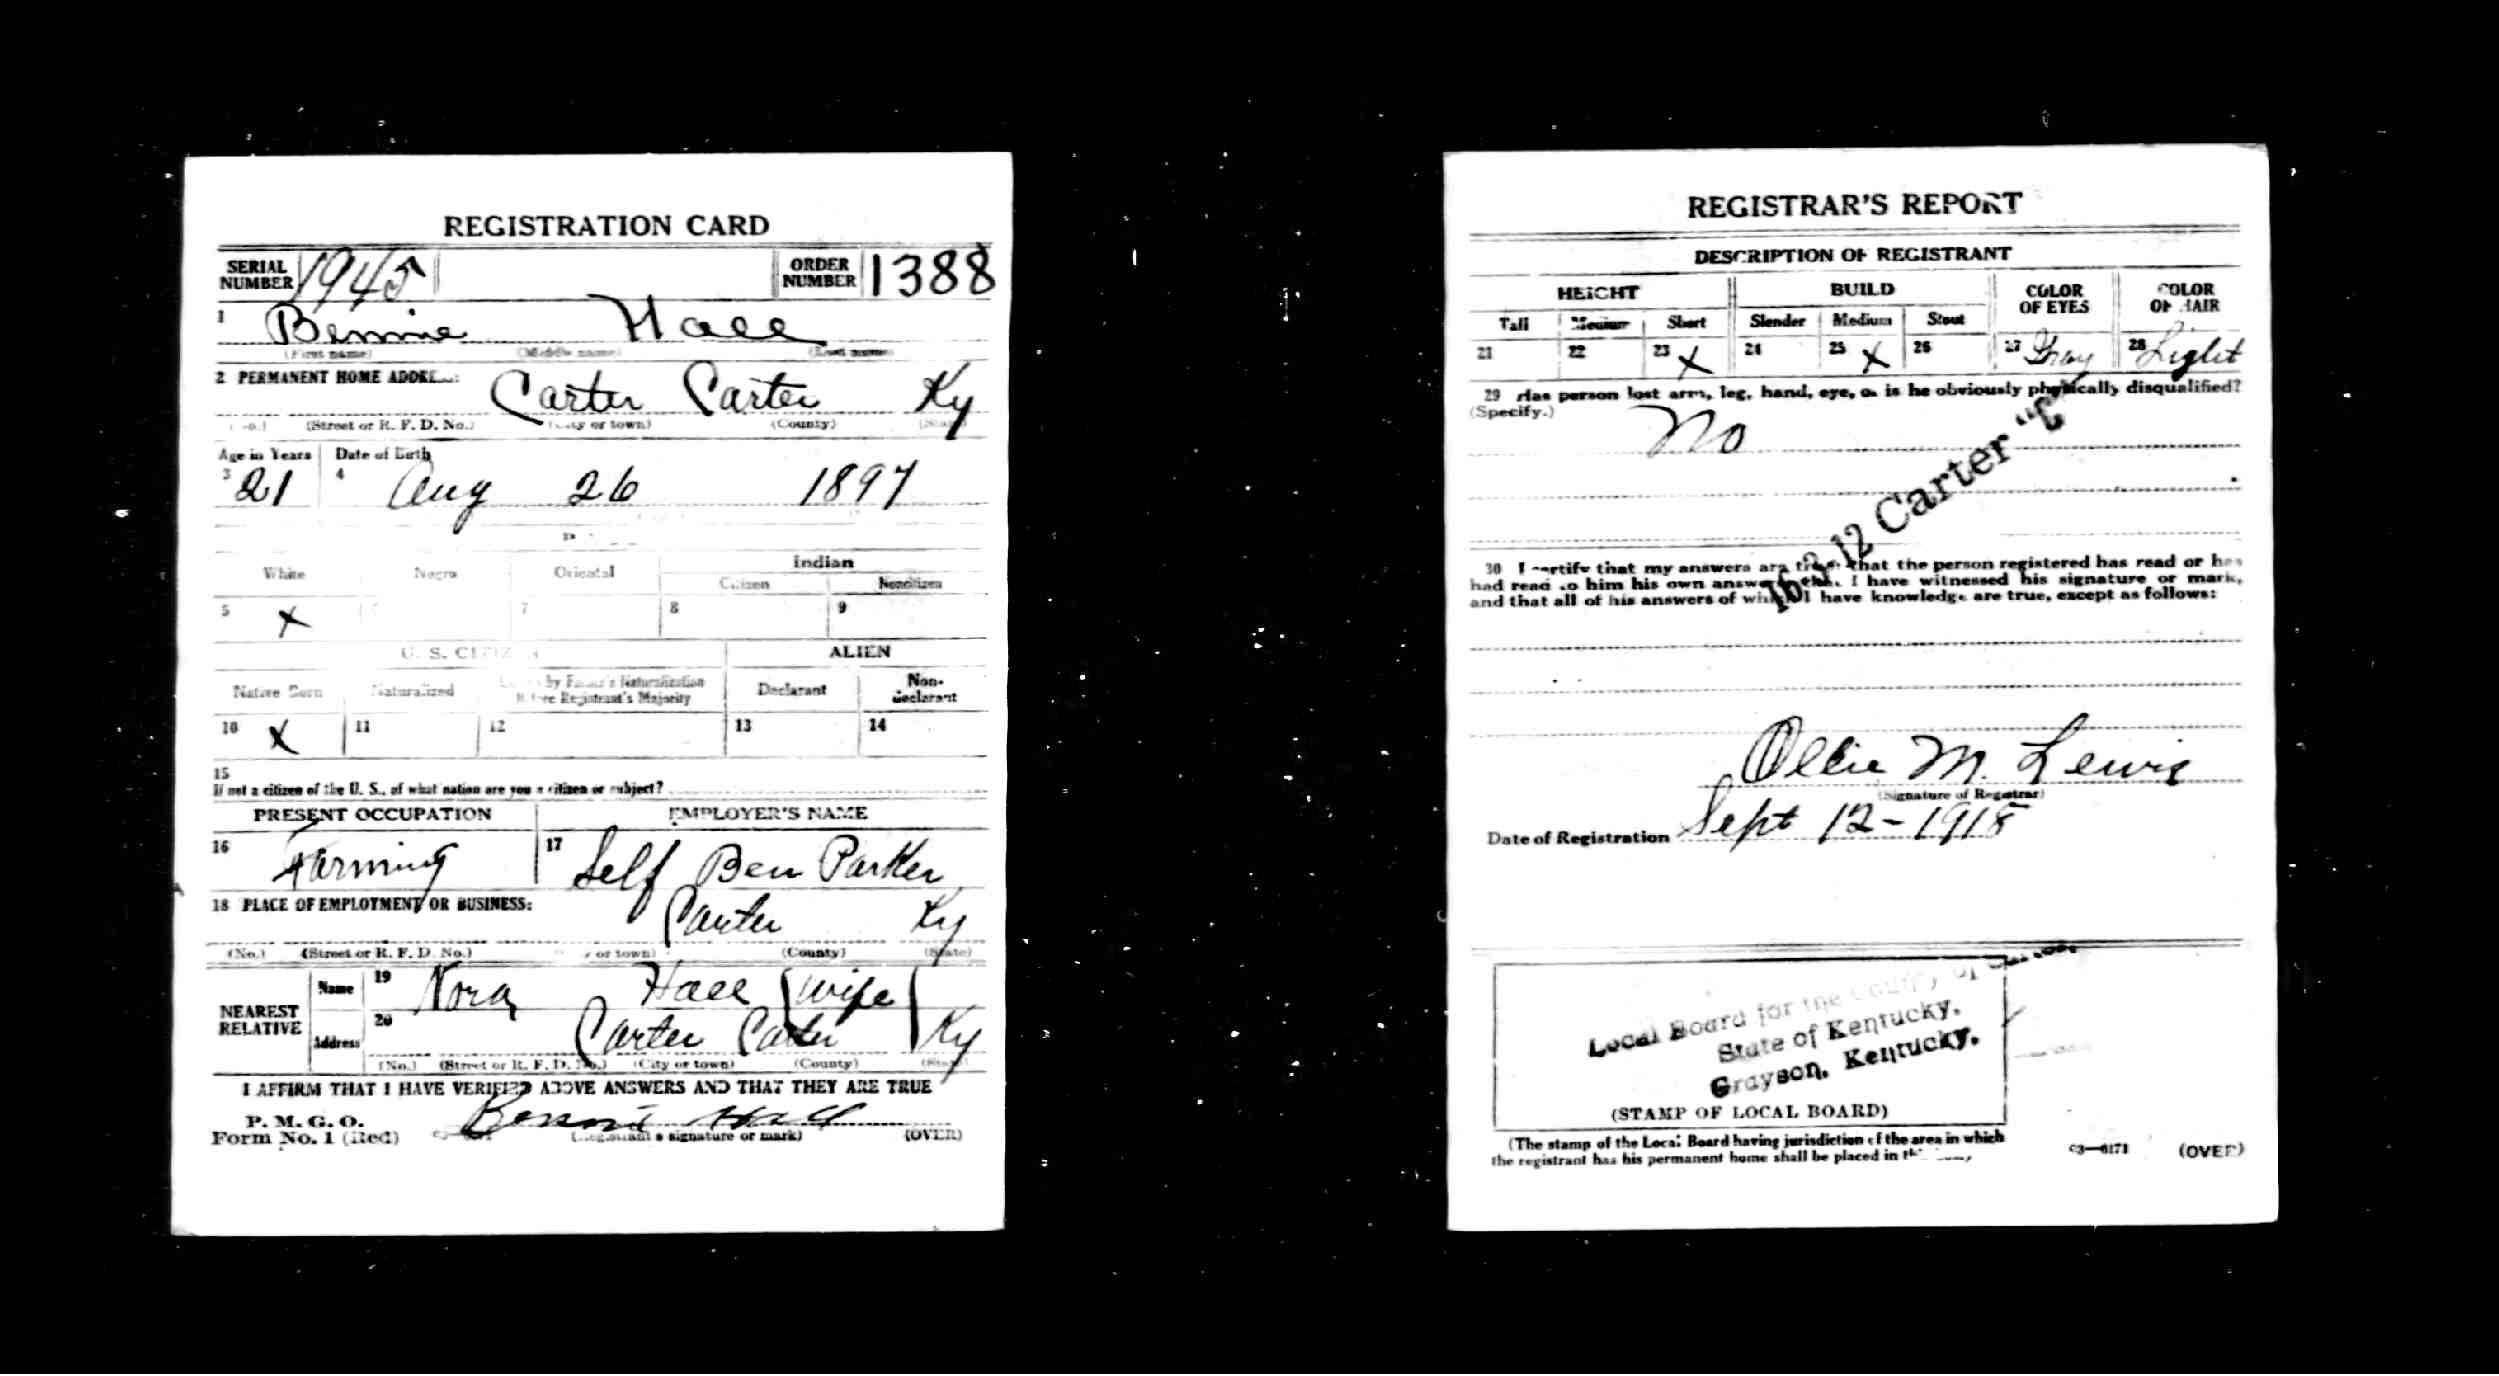 REGISTRATION CARD
SERIAL NUMBER 1945 ORDER NUMBER 1388
1 Bennie Hall
(First name) (Middle name) (Last name)
2 PERMANENT HOME ADDRESS: Carter Carter Ky
(No.) (Street or R. F. D. No.) (City or town) (County) (State)
Age in Years Date of Birth
3 21 4 Aug 26 1897
Indian
White Negro Oriental Citizen Noncitizen
5 X 7 8 9
U. S. CITIZEN ALIEN
Native Born Naturalized by Father's Naturalization Before Registrant's Majority Declarant Non-declarant
10 X 11 12 13 14
15
If not a citizen of the U. S., of what nation are you a citizen or subject?
PRESENT OCCUPATION EMPLOYER'S NAME
16 Farming 17 Self Ben Parker
18 PLACE OF EMPLOYMENT OR BUSINESS: Carter Ky
(No.) (Street or R. F. D. No.) (City or town) (County) (State)
NEAREST RELATIVE
Name 19 Nora Hall (wife)
Address 20 Carter Carter Ky
(No.) (Street or R. F. D. No.) (City or town) (County) (State)
I AFFIRM THAT I HAVE VERIFIED ABOVE ANSWERS AND THAT THEY ARE TRUE
P. M. G. O.
Form No. 1 (Red) Bennie Hall
(Registrant's signature or mark) (OVER)
REGISTRAR'S REPORT
DESCRIPTION OF REGISTRANT
HEIGHT BUILD COLOR OF EYES COLOR OF HAIR
Tall Medium Short Slender Medium Stout
21 22 23 X 24 25 X 26 27 Gray 28 Light
29 Has person lost arm, leg, hand, eye, or is he obviously physically disqualified?
(Specify.) No
16-2-12 Carter "C"
30 I certify that my answers are true; that the person registered has read or has
had read to him his own answers; that I have witnessed his signature or mark,
and that all of his answers of which I have knowledge are true, except as follows:
Ollie M. Lewis
(Signature of Registrar)
Date of Registration Sept 12-1918
Local Board for the County of Carter,
State of Kentucky.
Grayson, Kentucky.
(STAMP OF LOCAL BOARD)
(The stamp of the Local Board having jurisdiction of the area in which
the registrant has his permanent home shall be placed in this
03—6171 (OVER)